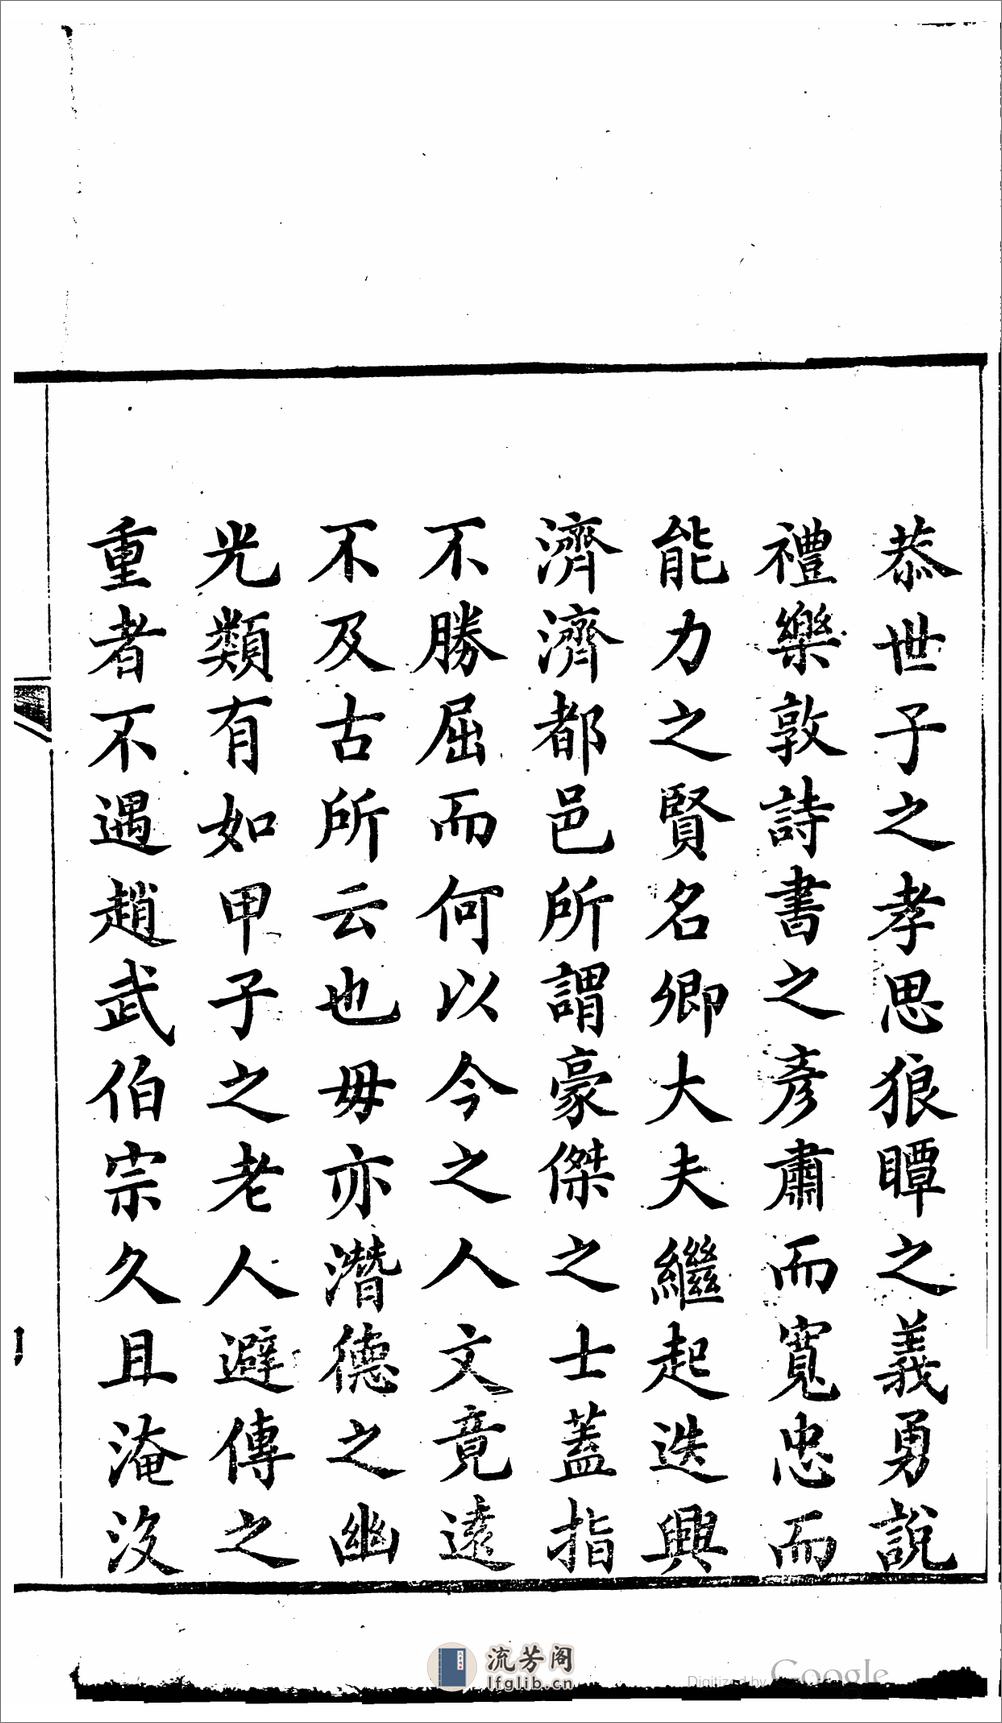 恭世子之孝思狼瞫之義勇說
禮樂敦詩書之彥肅而寬忠而
能力之賢名卿大夫繼起迭興
濟濟都邑所謂豪傑之士蓋指
不勝屈而何以今之人文竟遠
不及古所云也毋亦潛德之幽
光類有如甲子之老人避傳之
重者不遇趙武伯宗久且淹沒
流芳阁
lfglib.cn
Digitized by Google